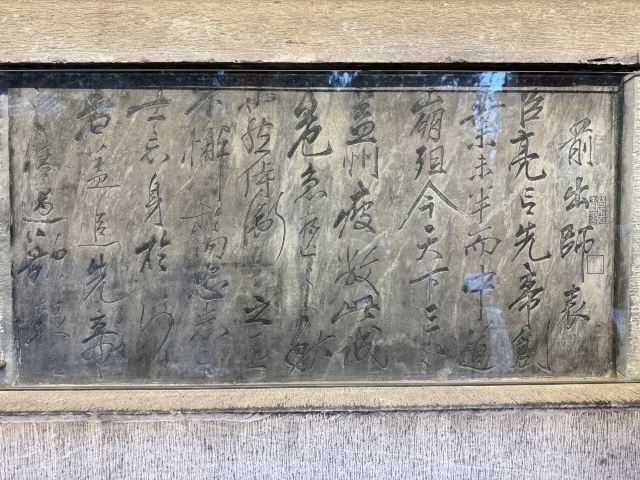 前出師表
臣亮言先帝創
業未半而中道
崩殂今天下三分
益州疲敝此誠
危急存亡之秋
也然侍衛之臣
不懈於內忠志之
士忘身於外
者蓋追先帝
之殊遇欲報